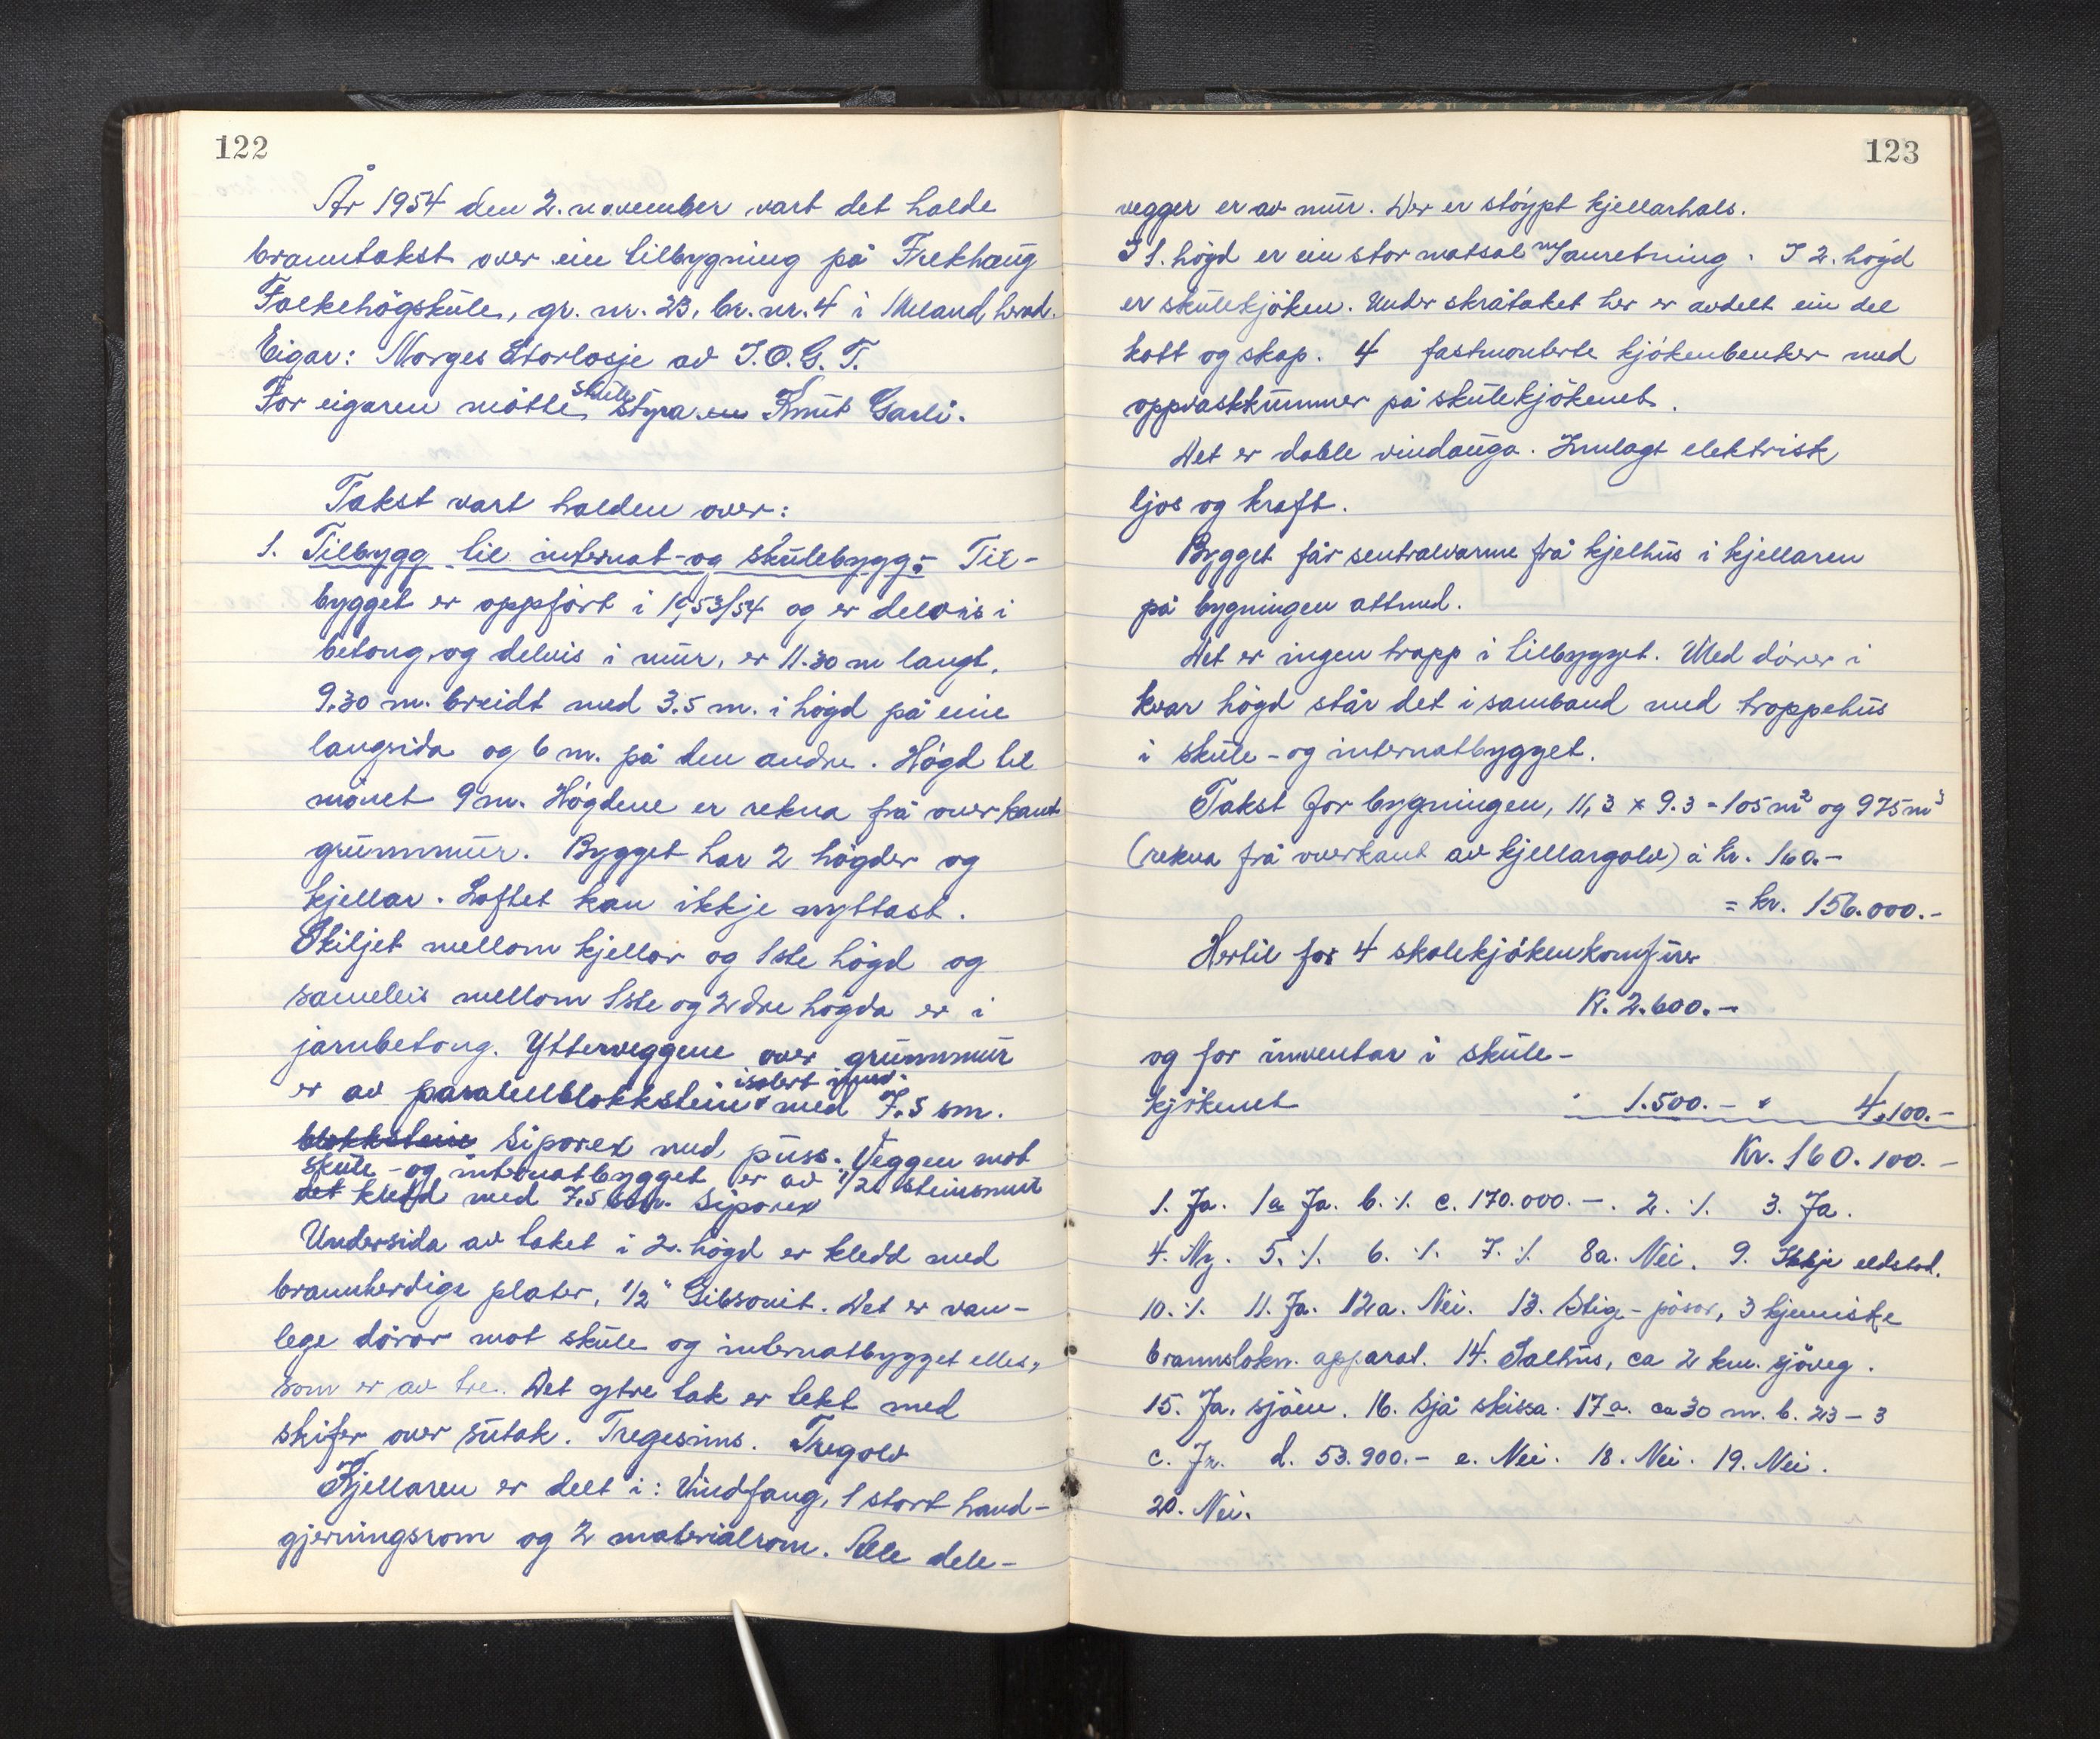 122
År 1954 den 2. november vart det halde
branntakst over ein tilbygning på Frekhaug
Folkehögskule, gr. nr. 23, br. nr. 4 i Meland herad.
Eigar: Norges Storlosje av I.O.G.T.
For eigaren møtte skulestyrar Knut Garli.
Takst vart halden over:
1. Tilbygg til internat- og skulebygg:- Til-
bygget er oppført i 1953/54 og er delvis i
betong og delvis i mur, er 11.30 m langt,
9.30 m. breidt med 3.5 m. i högd på eine
langsida og 6 m. på den andre. Högd til
mönet 9 m. Högdene er rekna frå overkant
grunnmur. Bygget har 2 högder og
kjellar. Loftet kan ikkje nyttast.
Skiljet mellom kjellar og 1ste högd og
sameleis mellom 1ste og 2dre högda er i
jarnbetong. Ytterveggene over grunnmur
er av paralellblokkstein isolert innv. med 7.5 sm.
blokkstein siporex med puss. Veggen mot
skule- og internatbygget er av 1/2 steinsmur
det kledd med 7.5 sm. siporex
Undersida av taket i 2. högd er kledd med
brannherdige plater, 1/2" Gibsonit. Det er van-
lege dörar mot skule og internatbygget elles,
som er av tre. Det ytre tak er tekt med
skifer over sutak. Tregesims. Tregolv
Kjellaren er delt i: Vindfang, 1 stort hand-
gjerningsrom og 2 materialrom. Alle dele-
123
vegger er av mur. Der er stöypt kjellarhals.
I 1. högd er ein stor matsal m/anretning. I 2. högd
er skulekjöken. Under skråtaket her er avdelt ein del
kott og skap. 4 fastmonterte kjökenbenker med
oppvaskkummer på skulekjökenet.
Det er doble vindauga. Innlagt elektrisk
ljos og kraft.
Bygget får sentralvarme frå kjelhus i kjellaren
på bygningen attmed.
Det er ingen trapp i tilbygget. Med dörer i
kvar högd står det i samband med trappehus
i skule- og internatbygget.
Takst for bygningen, 11,3 x 9.3 = 105 m² og 975 m³
(rekna frå overkant av kjellargolv) à kr. 160.-
= kr. 156.000.-
Hertil for 4 skolekjökenkomfurer
Kr. 2.600.-
og for inventar i skule-
kjökenet " 1.500.- " 4.100.-
Kr. 160.100.-
1. Ja. 1a Ja. b. ./. c. 170.000.-. 2. ./. 3. Ja.
4. Ny. 5. ./. 6. ./. 7. ./. 8a. Nei. 9. Ikkje eldstad.
10. ./. 11. Ja. 12a. Nei. 13. Stige- pösar, 3 kjemiske
brannslokn. apparat. 14. Salhus, ca 2 km. sjöveg.
15. Ja, sjöen. 16. Sjå skissa. 17a. ca 30 m. b. 23-3
c. Ja. d. 53.900.- e. Nei. 18. Nei. 19. Nei.
20. Nei.